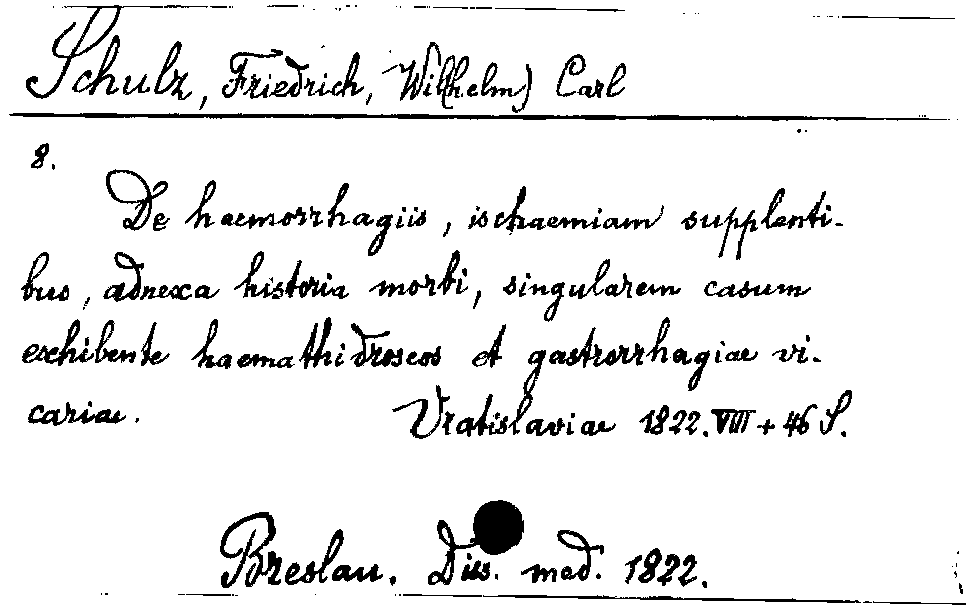 Schulz, Friedrich, Wil(helm) Carl
8.
De haemorrhagiis, ischaemiam supplenti-
bus, adnexa historia morbi, singularem casum
exhibente haemathidroseos et gastrorrhagiae vi-
cariae.
Vratislaviae 1822. VIII + 46 S.
Breslau. Diss. med. 1822.